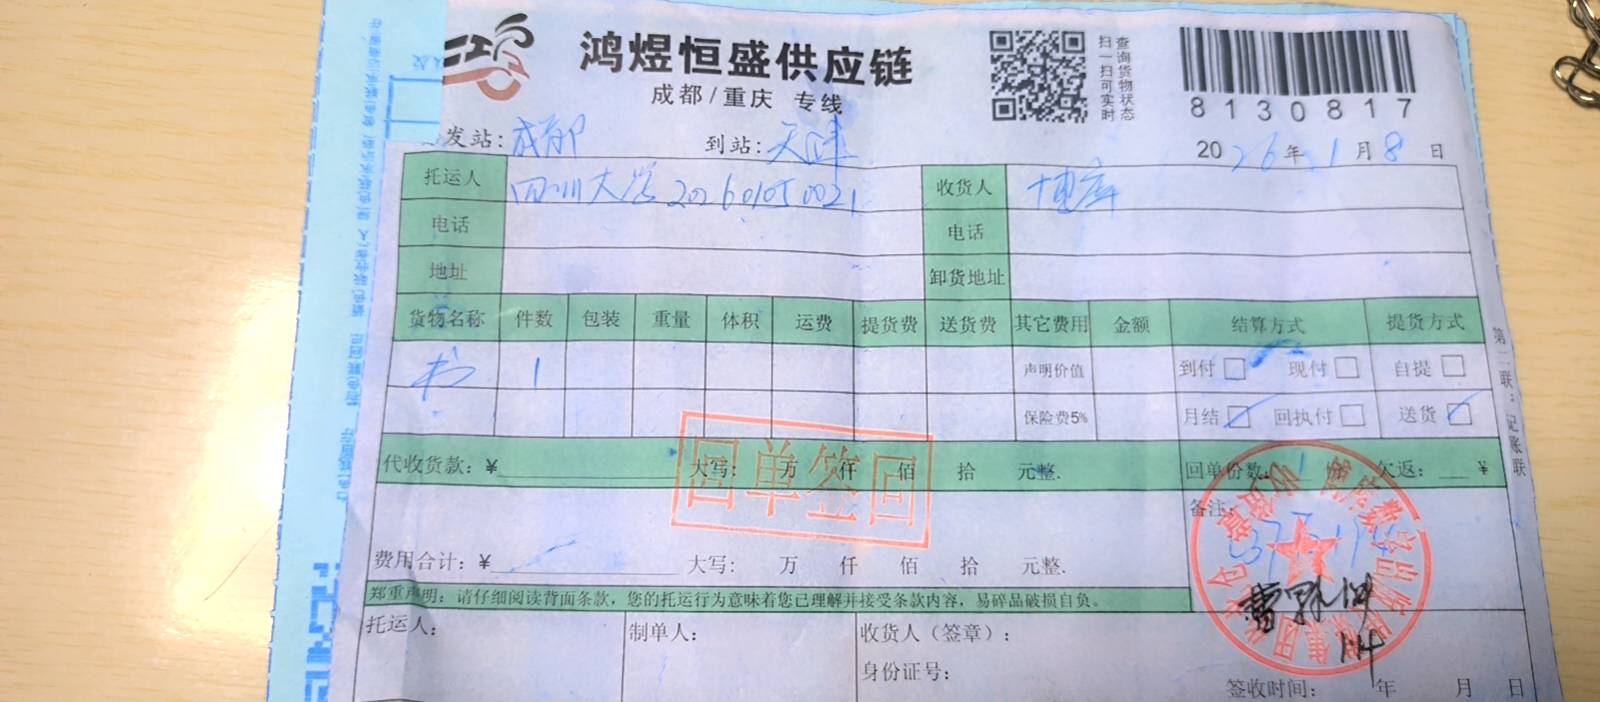 鸿煜恒盛供应链
成都/重庆 专线
查询货物状态
扫一扫可实时
8130817
发站：成都 到站：天津 2026年1月8日
托运人 四川大学 202601050021 收货人
电话 电话
地址 卸货地址
货物名称 件数 包装 重量 体积 运费 提货费 送货费 其它费用 金额 结算方式 提货方式
书 1 声明价值 到付 现付 自提
保险费5% 月结 回执付 送货
代收货款：¥ 大写： 万 仟 佰 拾 元整. 回单份数：1 欠返： ¥
回单签回
备注：
费用合计：¥ 大写： 万 仟 佰 拾 元整.
郑重声明：请仔细阅读背面条款，您的托运行为意味着您已理解并接受条款内容，易碎品破损自负。
托运人： 制单人： 收货人（签章）：
身份证号：
签收时间： 年 月 日
第二联：记账联